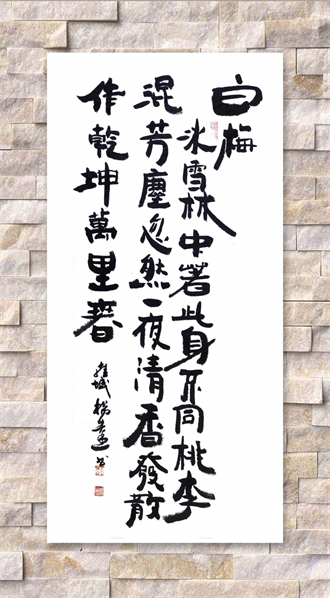 白梅
氷雪林中著此身不同桃李
混芳塵忽然一夜清香發散
作乾坤萬里春